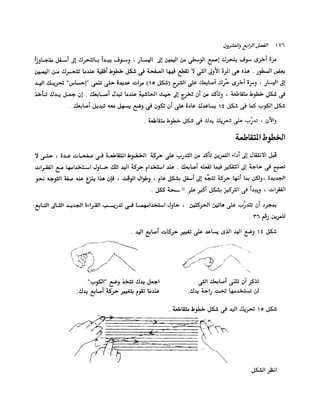 ١٧٦ الفصل الرابع والعشرون
مرة أخرى سوف يتحرك إصبع الوسطى من اليمين إلى اليسار ، وسوف يبدأ بالتحرك إلى أسفل متجاوزاً
بعض السطور . هذه هى المرة الأولى التى لا تقطع فيها الصفحة فى شكل خطوط أفقية عندما تتحرك من اليمين
إلى اليسار ، ومرة أخرى حرِّك أصابعك على الشرح (شكل ١٥) مرات عديدة حتى تنمى "إحساس" تحريك اليد
فى شكل خطوط متقاطعة ، وتأكد من أن تخرج إلى حيث الحاشية عندما تبدل أصابعك . إن جعل يدك تأخذ
شكل الكوب كما فى شكل ١٤ يساعدك عادة على أن تكون فى وضع يسهل معه تبديل أصابعك .
والآن ، تدرَّب على تحريك يدك فى شكل خطوط متقاطعة .
الخطوط المتقاطعة
قبل الانتقال إلى أداء التمرين تأكد من التدرب على حركة الخطوط المتقاطعة فى صفحات عدة ، حتى لا
تصبح فى حاجة إلى التفكير فيما تفعله أصابعك . عند استخدام حركة اليد تلك حاول استخدامها مع الفقرات
الجديدة ،ولكن بما أنها حركة تتجَّه إلى أسفل بشكل عام ، وطوال الوقت ، فإن هذا ينزع عنه صفة التوجه نحو
الفقرات ، ويبدأ فى التركيز بشكل أكبر على الصفحة ككل .
بمجرد أن تتدرَّب على هاتين الحركتين ، حاول استخدامهما فى تدريب القراءة الجديد التالى التابع
لتمرين رقم ٣٦ .
شكل ١٤ وضع اليد الذى يساعد على تغيير حركات أصابع اليد .
تذكر أن تثنى أصابعك التى
لن تستخدمها تحت راحة يدك.
اجعل يدك تتخذ وضع "الكوب"
عندما تقوم بتغيير حركة أصابع يدك.
شكل ١٥ تحريك اليد فى شكل خطوط متقاطعة .
انظر الشكل